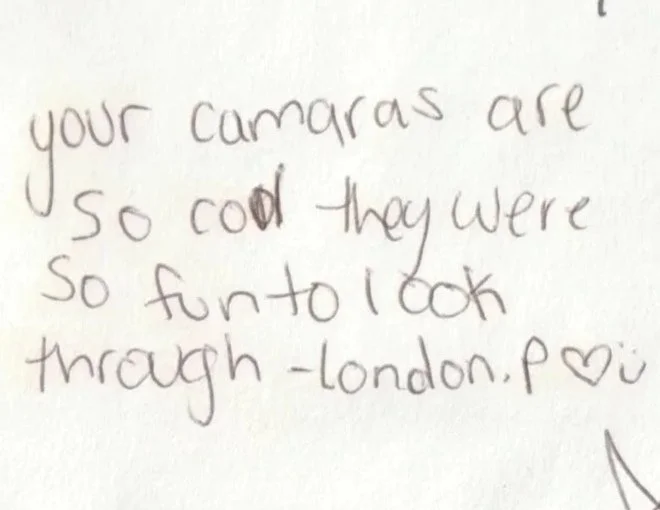 your camaras are
so cool they were
so fun to look
through -london.P ♡ü